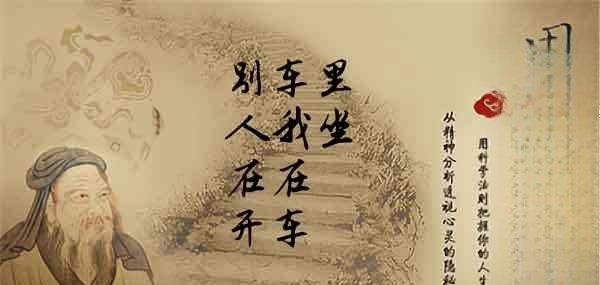 别人在开
车我在车
里坐
用科学法则把握你的人生
从精神分析透视心灵的隐秘